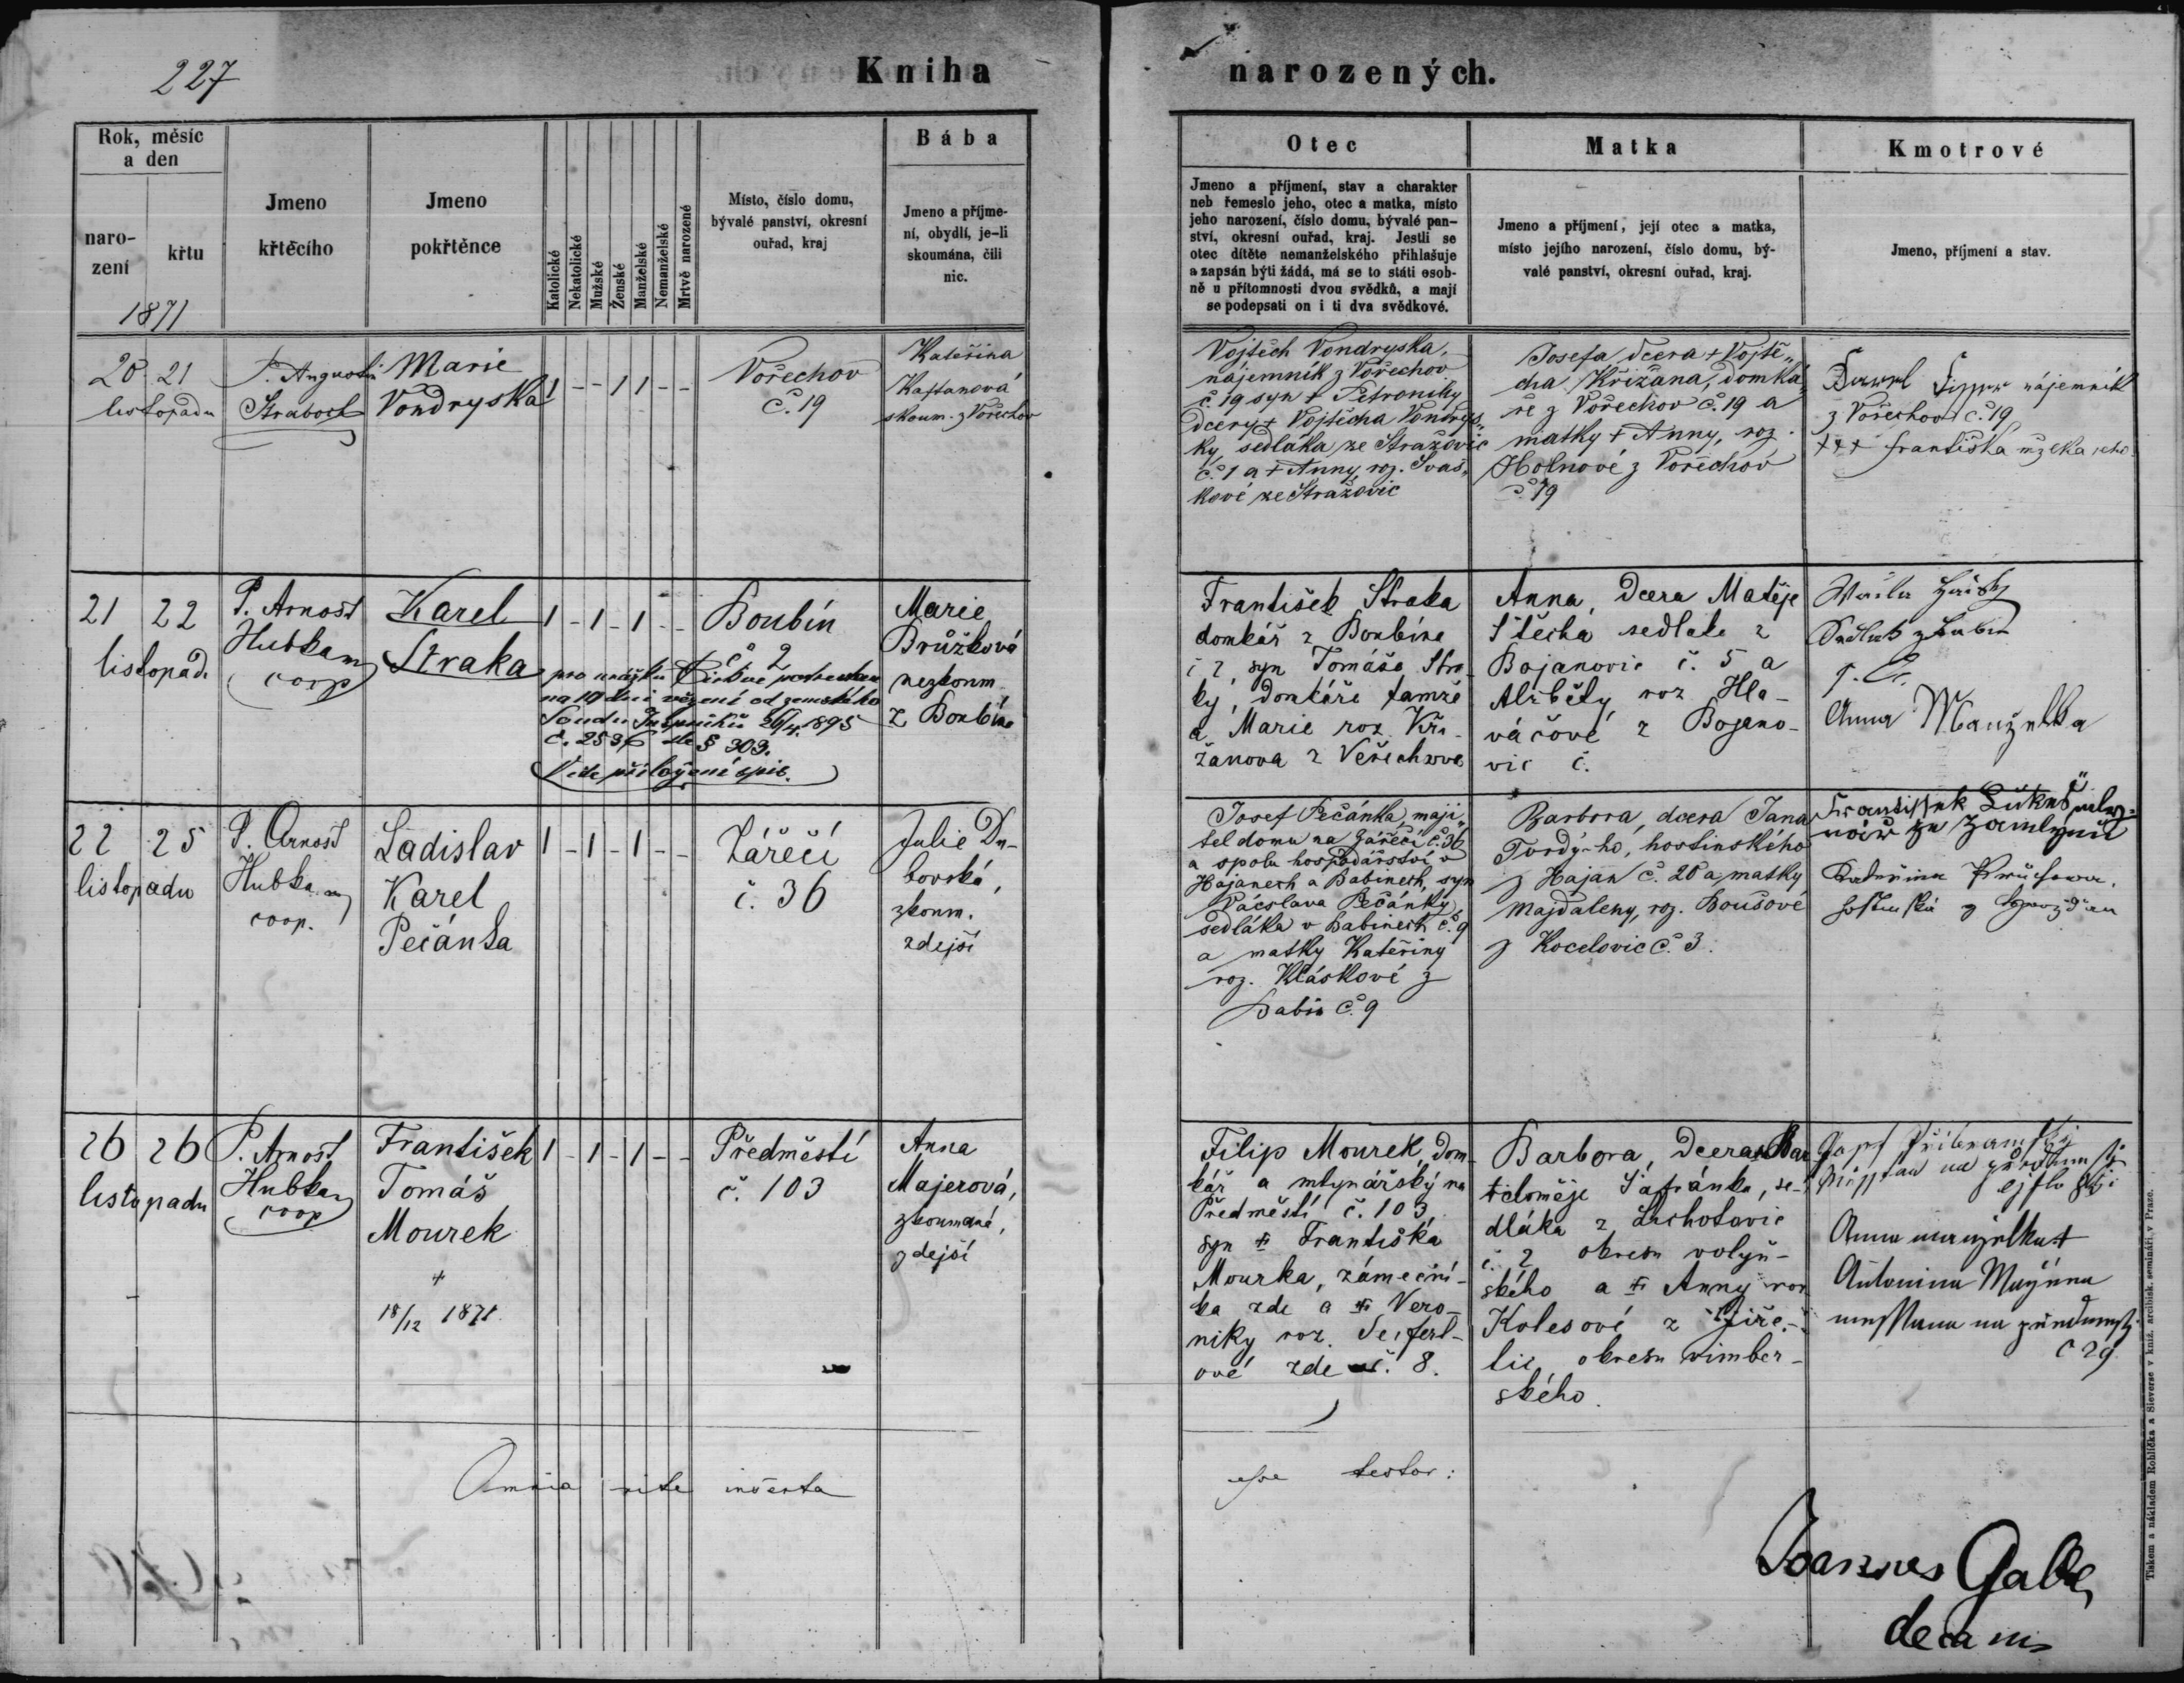 227
Kniha
narozených.
Rok, měsíc
a den
naro-
zení
křtu
1871
Jmeno
křtěcího
Jmeno
pokřtěnce
Katolické
Nekatolické
Mužské
Ženské
Manželské
Nemanželské
Mrtvě narozené
Místo, číslo domu,
bývalé panství, okresní
ouřad, kraj
Bába
Jmeno a příjme-
ní, obydlí, je-li
skoumána, čili
nic.
Otec
Jmeno a příjmení, stav a charakter
neb řemeslo jeho, otec a matka, místo
jeho narození, číslo domu, bývalé pan-
ství, okresní ouřad, kraj. Jestli se
otec dítěte nemanželského přihlašuje
a zapsán býti žádá, má se to státi osob-
ně u přítomnosti dvou svědků, a mají
se podepsati on i ti dva svědkové.
Matka
Jmeno a příjmení, její otec a matka,
místo jejího narození, číslo domu, bý-
valé panství, okresní ouřad, kraj.
Kmotrové
Jmeno, příjmení a stav.
20 21
listopadu
P. Augustin
Straboch
Marie
Vondryska
1 - - 1 1 - -
Vořechov
č. 19
Kateřina
Kaftanová
skoum. z Vořechov
Vojtěch Vondryska,
nájemník z Vořechov
č. 19 syn + Petronily
dcery + Vojtěcha Vondrys„
ky, sedláka ze Stražovic
č. 1 a + Anny, roz. Svaš„
kové ze Stražovic
Josefa, dcera + Vojtě„
cha Křižana, domká„
ře z Vořechov č. 19 a
matky + Anny, roz.
Holnové z Vořechov
č. 19
nájemník
z Vořechov č. 19
+++ Františka
21 22
listopad.
P. Arnošt
Hubka
coop
Karel
Straka
1 - 1 - 1 - -
Boubín
č. 2
pro urážku Církve
na 10 dní vězení od zemského
Soudu 26/4. 1895
č. 2536 dle § 303.
Vide přiložené spis.
Marie
Brůžková
nezkoum
z Boubína
František Straka
domkář z Boubína
č 2, syn Tomáše Stra-
ky, domkáře tamže
a Marie roz. Kři-
žanova z Vořechova
Anna, dcera Matěje
Štěcha sedláka z
Bojanovic č. 5 a
Alžběty roz Hla-
váčové z Bojano-
vic č.
Anna Manželka
22 25
listopadu
P. Arnošt
Hubka
coop.
Ladislav
Karel
Pečánka
1 - 1 - 1 - -
Zářečí
č. 36
Julie Du-
bovská,
zkoum.
zdejší
Josef Pečánka, maji„
tel domu na Zářečí č. 36
a spolu hospodářství v
Hajanech a Babinech, syn
Václava Pečánky,
sedláka v Babinech č. 9
a matky Kateřiny
roz. Kláskové z
Babin č. 9
Barbora, dcera Jana
Tvrdýho, hostinského
z Hajan č. 20 a matky
Majdaleny, roz. Boušové
z Kocelovic č. 3.
26 26
listopadu
P. Arnošt
Hubka
coop
František
Tomáš
Mourek
+
18/12 1871.
1 - 1 - 1 - -
Předměstí
č. 103
Anna
Majerová,
zkoumaná,
zdejší
Filip Mourek, dom-
kář a mlynářský na
Předměstí č. 103,
syn + Františka
Mourka, zámeční-
ka zde a + Vero-
niky roz. Seifert-
ové zde č. 8.
Barbora, dcera + Bar
toloměje Šafránka, se-
dláka z Lhotovic
č. 2 okresu volyň-
ského a + Anny roz
Kolesové z
lic okresu vimber-
ského.
Anna manželka +
Antonína
č 29
Omnia rite inserta
esse testor:
Joannes
decanus
Tiskem a nákladem Rohlíčka a Sieverse v kníž. arcibisk. semináři v Praze.